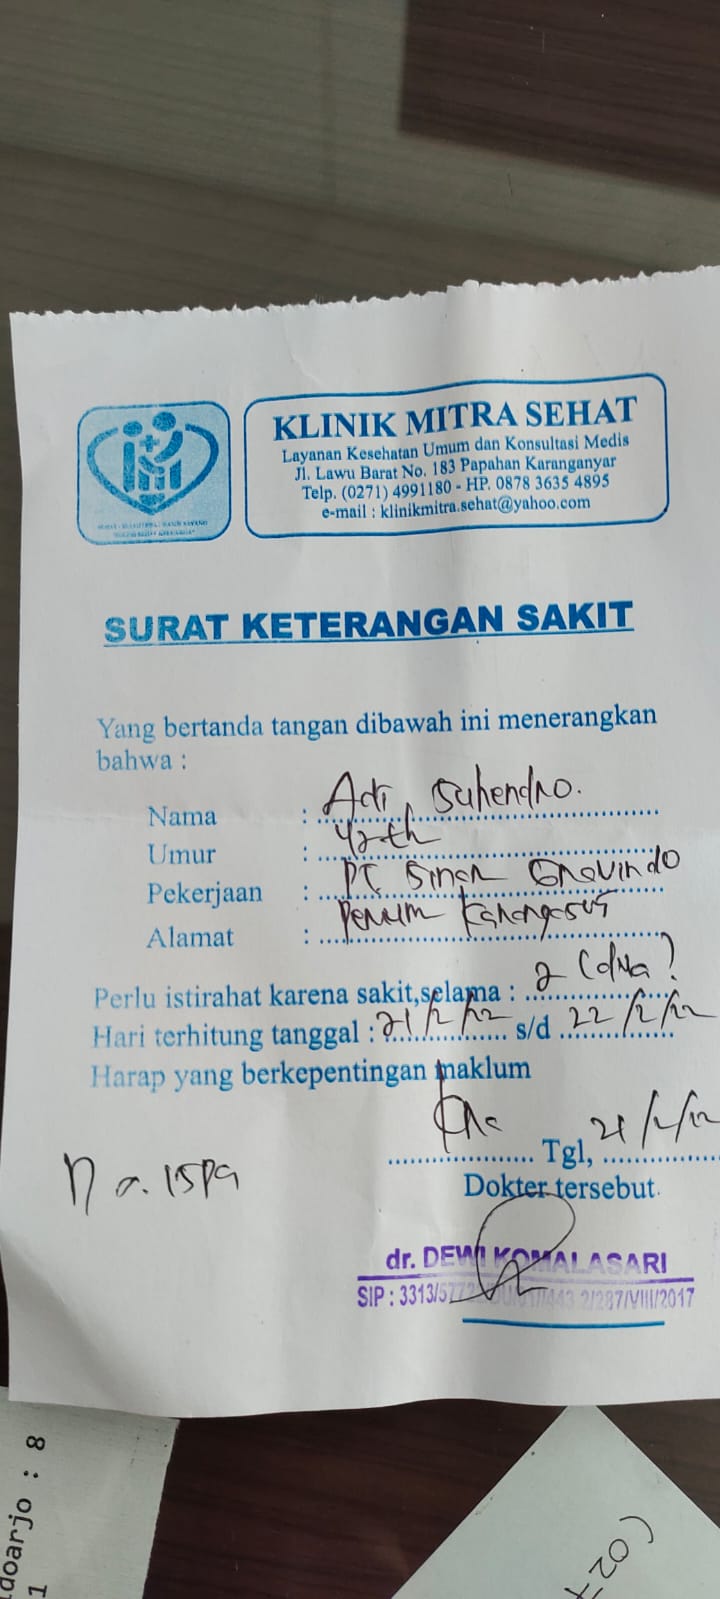 KLINIK MITRA SEHAT
Layanan Kesehatan Umum dan Konsultasi Medis
Jl. Lawu Barat No. 183 Papahan Karanganyar
Telp. (0271) 4991180 - HP. 0878 3635 4895
e-mail : klinikmitra.sehat@yahoo.com
SURAT KETERANGAN SAKIT
Yang bertanda tangan dibawah ini menerangkan
bahwa :
Nama : Adi Suhendro.
Umur : 42 th
Pekerjaan : PT Sinar Gravindo
Alamat : Perum
Perlu istirahat karena sakit,selama : 2 (dua)
Hari terhitung tanggal : 21/2/22 s/d 22/2/22
Harap yang berkepentingan maklum
Tgl, 21/2/22
Dokter tersebut
ISPA
dr. DEWI KOMALASARI
SIP : 3313/5772 2/287/VIII/2017
doarjo : 8
1